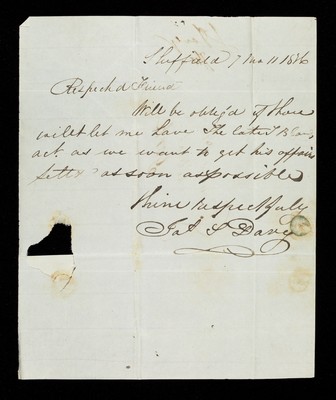 Sheffield 7 mo 11 1836
Respectd Friend
Will be oblig'd if thou
wilt let me have The late
act. as we want to get his affairs
settd as soon as possible
thine respectfully
Jas S Davy